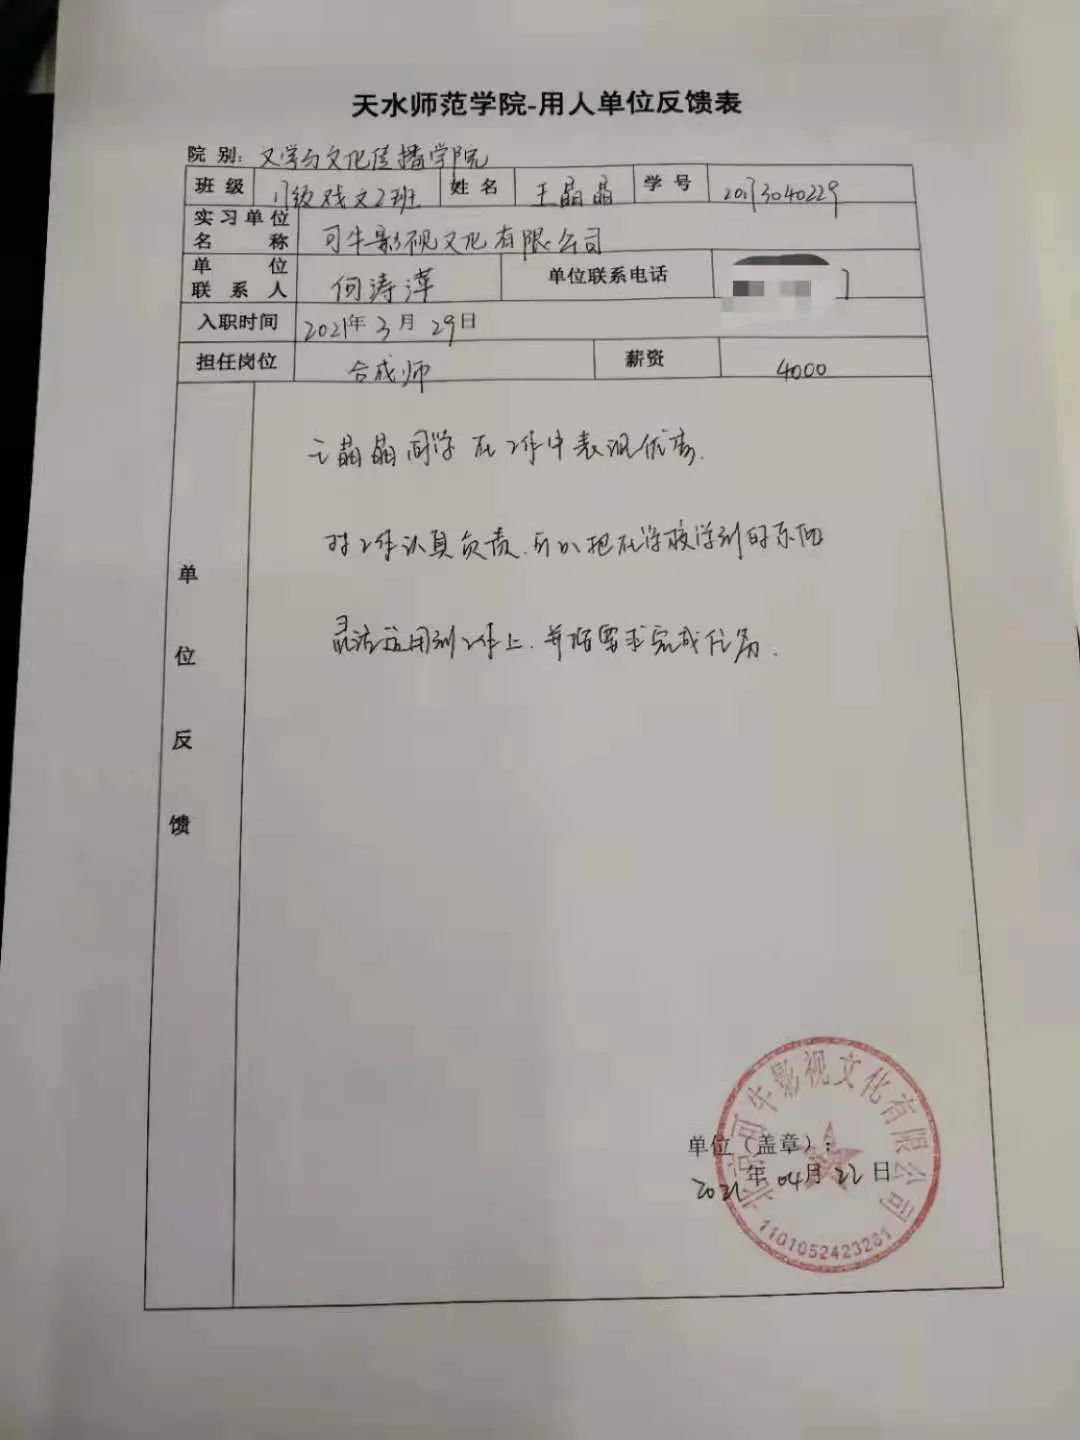 天水师范学院-用人单位反馈表
院别：文学与文化传播学院
班级 17级戏文2班 姓名 王晶晶 学号 20173040229
实习单位名称 可牛影视文化有限公司
单位联系人 何涛萍 单位联系电话
入职时间 2021年3月29日
担任岗位 合成师 薪资 4000
单位反馈
王晶晶同学在工作中表现优秀.
对工作认真负责.可以把在学校学到的东西
灵活运用到工作上.并按要求完成任务.
单位（盖章）：
2021年04月22日
北京可牛影视文化有限公司
1101052423281